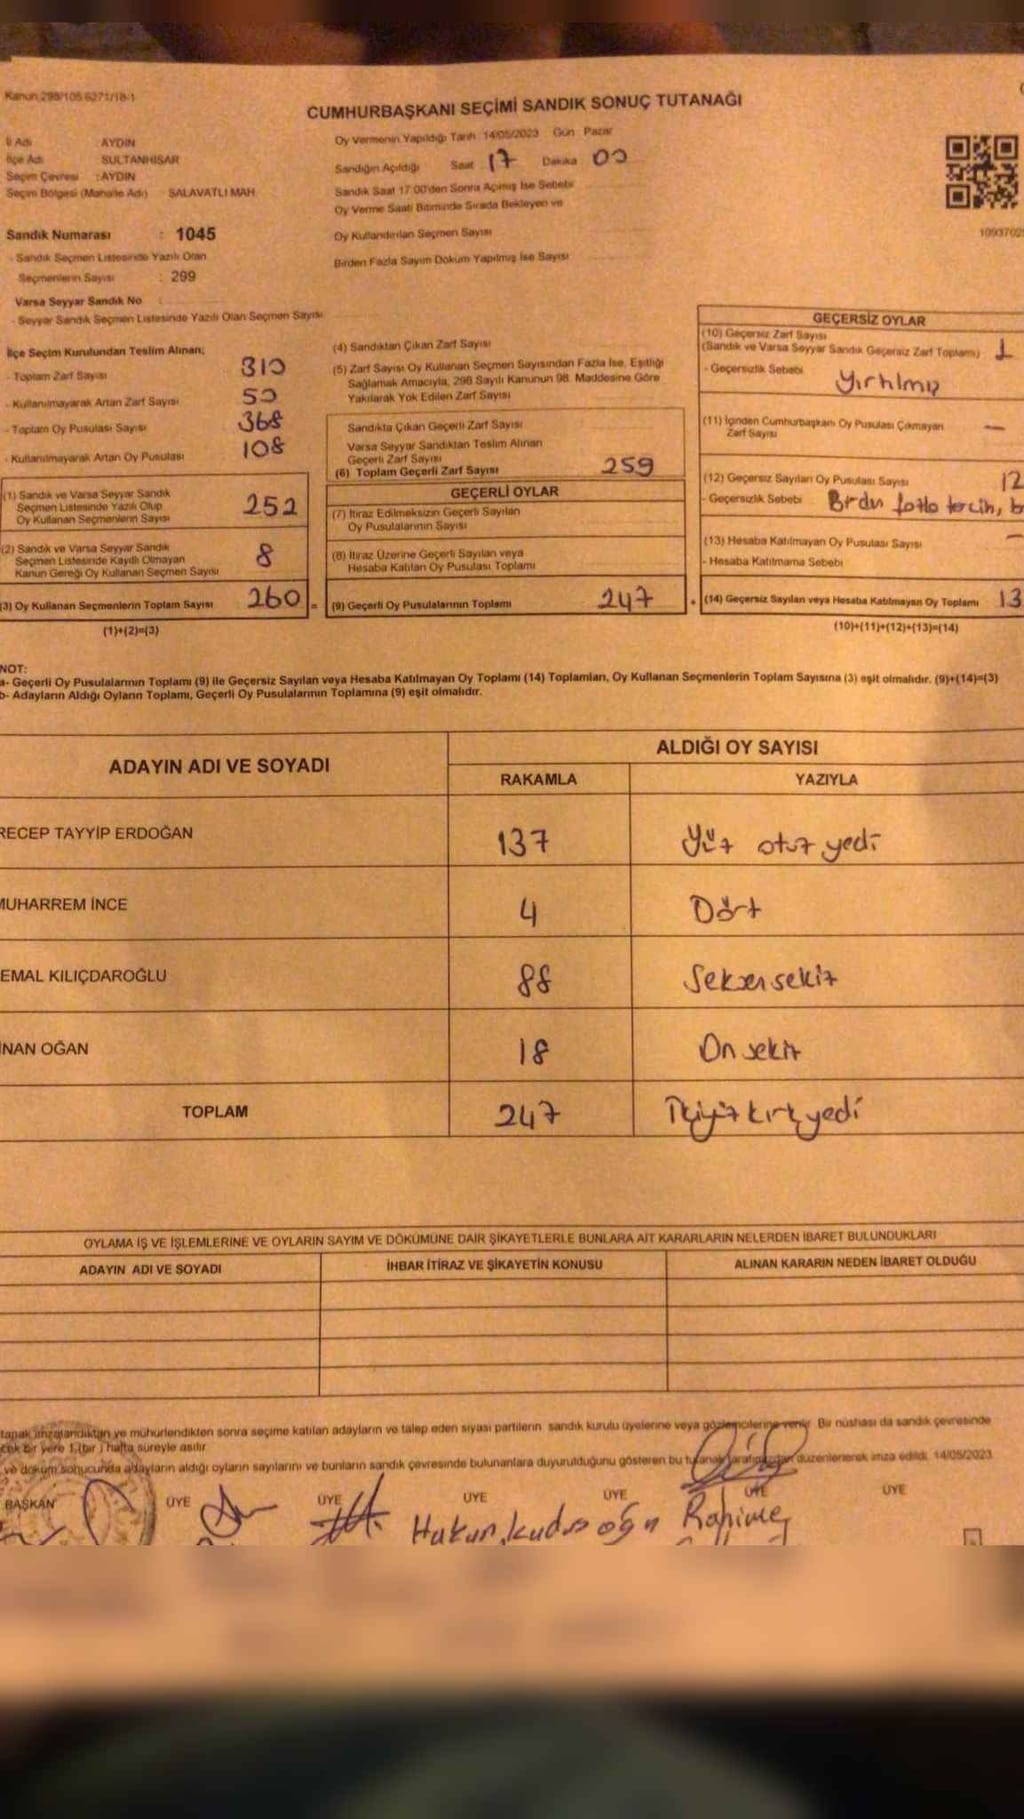 Kanun 298/105 6271/18-1
CUMHURBAŞKANI SEÇİMİ SANDIK SONUÇ TUTANAĞI
İl Adı AYDIN
İlçe Adı SULTANHİSAR
Seçim Çevresi : AYDIN
Seçim Bölgesi (Mahalle Adı) SALAVATLI MAH
Sandık Numarası : 1045
- Sandık Seçmen Listesinde Yazılı Olan
Seçmenlerin Sayısı : 299
Varsa Seyyar Sandık No :
- Seyyar Sandık Seçmen Listesinde Yazılı Olan Seçmen Sayısı
Oy Vermenin Yapıldığı Tarih 14/05/2023 Gün Pazar
Sandığın Açıldığı Saat 17 Dakika 00
Sandık Saat 17:00'den Sonra Açılmış İse Sebebi
Oy Verme Saati Bitiminde Sırada Bekleyen ve
Oy Kullandırılan Seçmen Sayısı
Birden Fazla Sayım Döküm Yapılmış İse Sayısı
İlçe Seçim Kurulundan Teslim Alınan;
- Toplam Zarf Sayısı 310
- Kullanılmayarak Artan Zarf Sayısı 50
- Toplam Oy Pusulası Sayısı 368
- Kullanılmayarak Artan Oy Pusulası 108
(1) Sandık ve Varsa Seyyar Sandık
Seçmen Listesinde Yazılı Olup
Oy Kullanan Seçmenlerin Sayısı 252
(2) Sandık ve Varsa Seyyar Sandık
Seçmen Listesinde Kayıtlı Olmayan
Kanun Gereği Oy Kullanan Seçmen Sayısı 8
(3) Oy Kullanan Seçmenlerin Toplam Sayısı 260 =
(1)+(2)=(3)
(4) Sandıktan Çıkan Zarf Sayısı
(5) Zarf Sayısı Oy Kullanan Seçmen Sayısından Fazla İse, Eşitliği
Sağlamak Amacıyla, 298 Sayılı Kanunun 98. Maddesine Göre
Yakılarak Yok Edilen Zarf Sayısı
Sandıkta Çıkan Geçerli Zarf Sayısı
Varsa Seyyar Sandıktan Teslim Alınan
Geçerli Zarf Sayısı
(6) Toplam Geçerli Zarf Sayısı 259
GEÇERLİ OYLAR
(7) İtiraz Edilmeksizin Geçerli Sayılan
Oy Pusulalarının Sayısı
(8) İtiraz Üzerine Geçerli Sayılan veya
Hesaba Katılan Oy Pusulası Toplamı
(9) Geçerli Oy Pusulalarının Toplamı 247 +
GEÇERSİZ OYLAR
(10) Geçersiz Zarf Sayısı
(Sandık ve Varsa Seyyar Sandık Geçersiz Zarf Toplamı) 1
- Geçersizlik Sebebi Yırtılmış
(11) İçinden Cumhurbaşkanı Oy Pusulası Çıkmayan
Zarf Sayısı —
(12) Geçersiz Sayılan Oy Pusulası Sayısı 12
- Geçersizlik Sebebi Birden fazla tercih, b
(13) Hesaba Katılmayan Oy Pusulası Sayısı —
- Hesaba Katılmama Sebebi
(14) Geçersiz Sayılan veya Hesaba Katılmayan Oy Toplamı 13
(10)+(11)+(12)+(13)=(14)
NOT:
a- Geçerli Oy Pusulalarının Toplamı (9) ile Geçersiz Sayılan veya Hesaba Katılmayan Oy Toplamı (14) Toplamları, Oy Kullanan Seçmenlerin Toplam Sayısına (3) eşit olmalıdır. (9)+(14)=(3)
b- Adayların Aldığı Oyların Toplamı, Geçerli Oy Pusulalarının Toplamına (9) eşit olmalıdır.
ADAYIN ADI VE SOYADI ALDIĞI OY SAYISI
RAKAMLA YAZIYLA
RECEP TAYYİP ERDOĞAN 137 Yüz otuz yedi
MUHARREM İNCE 4 Dört
EMAL KILIÇDAROĞLU 88 Seksen sekiz
İNAN OĞAN 18 On sekiz
TOPLAM 247 İkiyüz kırk yedi
OYLAMA İŞ VE İŞLEMLERİNE VE OYLARIN SAYIM VE DÖKÜMÜNE DAİR ŞİKAYETLERLE BUNLARA AİT KARARLARIN NELERDEN İBARET BULUNDUKLARI
ADAYIN ADI VE SOYADI İHBAR İTİRAZ VE ŞİKAYETİN KONUSU ALINAN KARARIN NEDEN İBARET OLDUĞU
imzalandıktan ve mühürlendikten sonra seçime katılan adayların ve talep eden siyasi partilerin sandık kurulu üyelerine veya gözlemcilerine verilir. Bir nüshası da sandık çevresinde
bir yere 1 (bir) hafta süreyle asılır
ve döküm sonucunda adayların aldığı oyların sayılarını ve bunların sandık çevresinde bulunanlara duyurulduğunu gösteren bu tutanak düzenlenerek imza edildi. 14/05/2023
BAŞKAN ÜYE ÜYE ÜYE ÜYE ÜYE ÜYE
Hakan Rahime